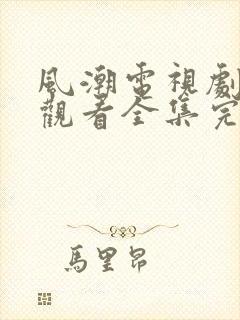 風潮電視劇
觀看全集完
馬里昂